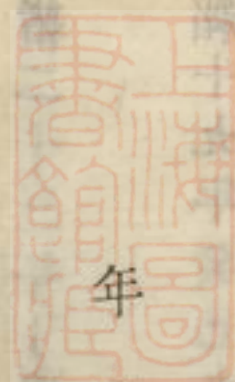 上海圖
書館藏
年